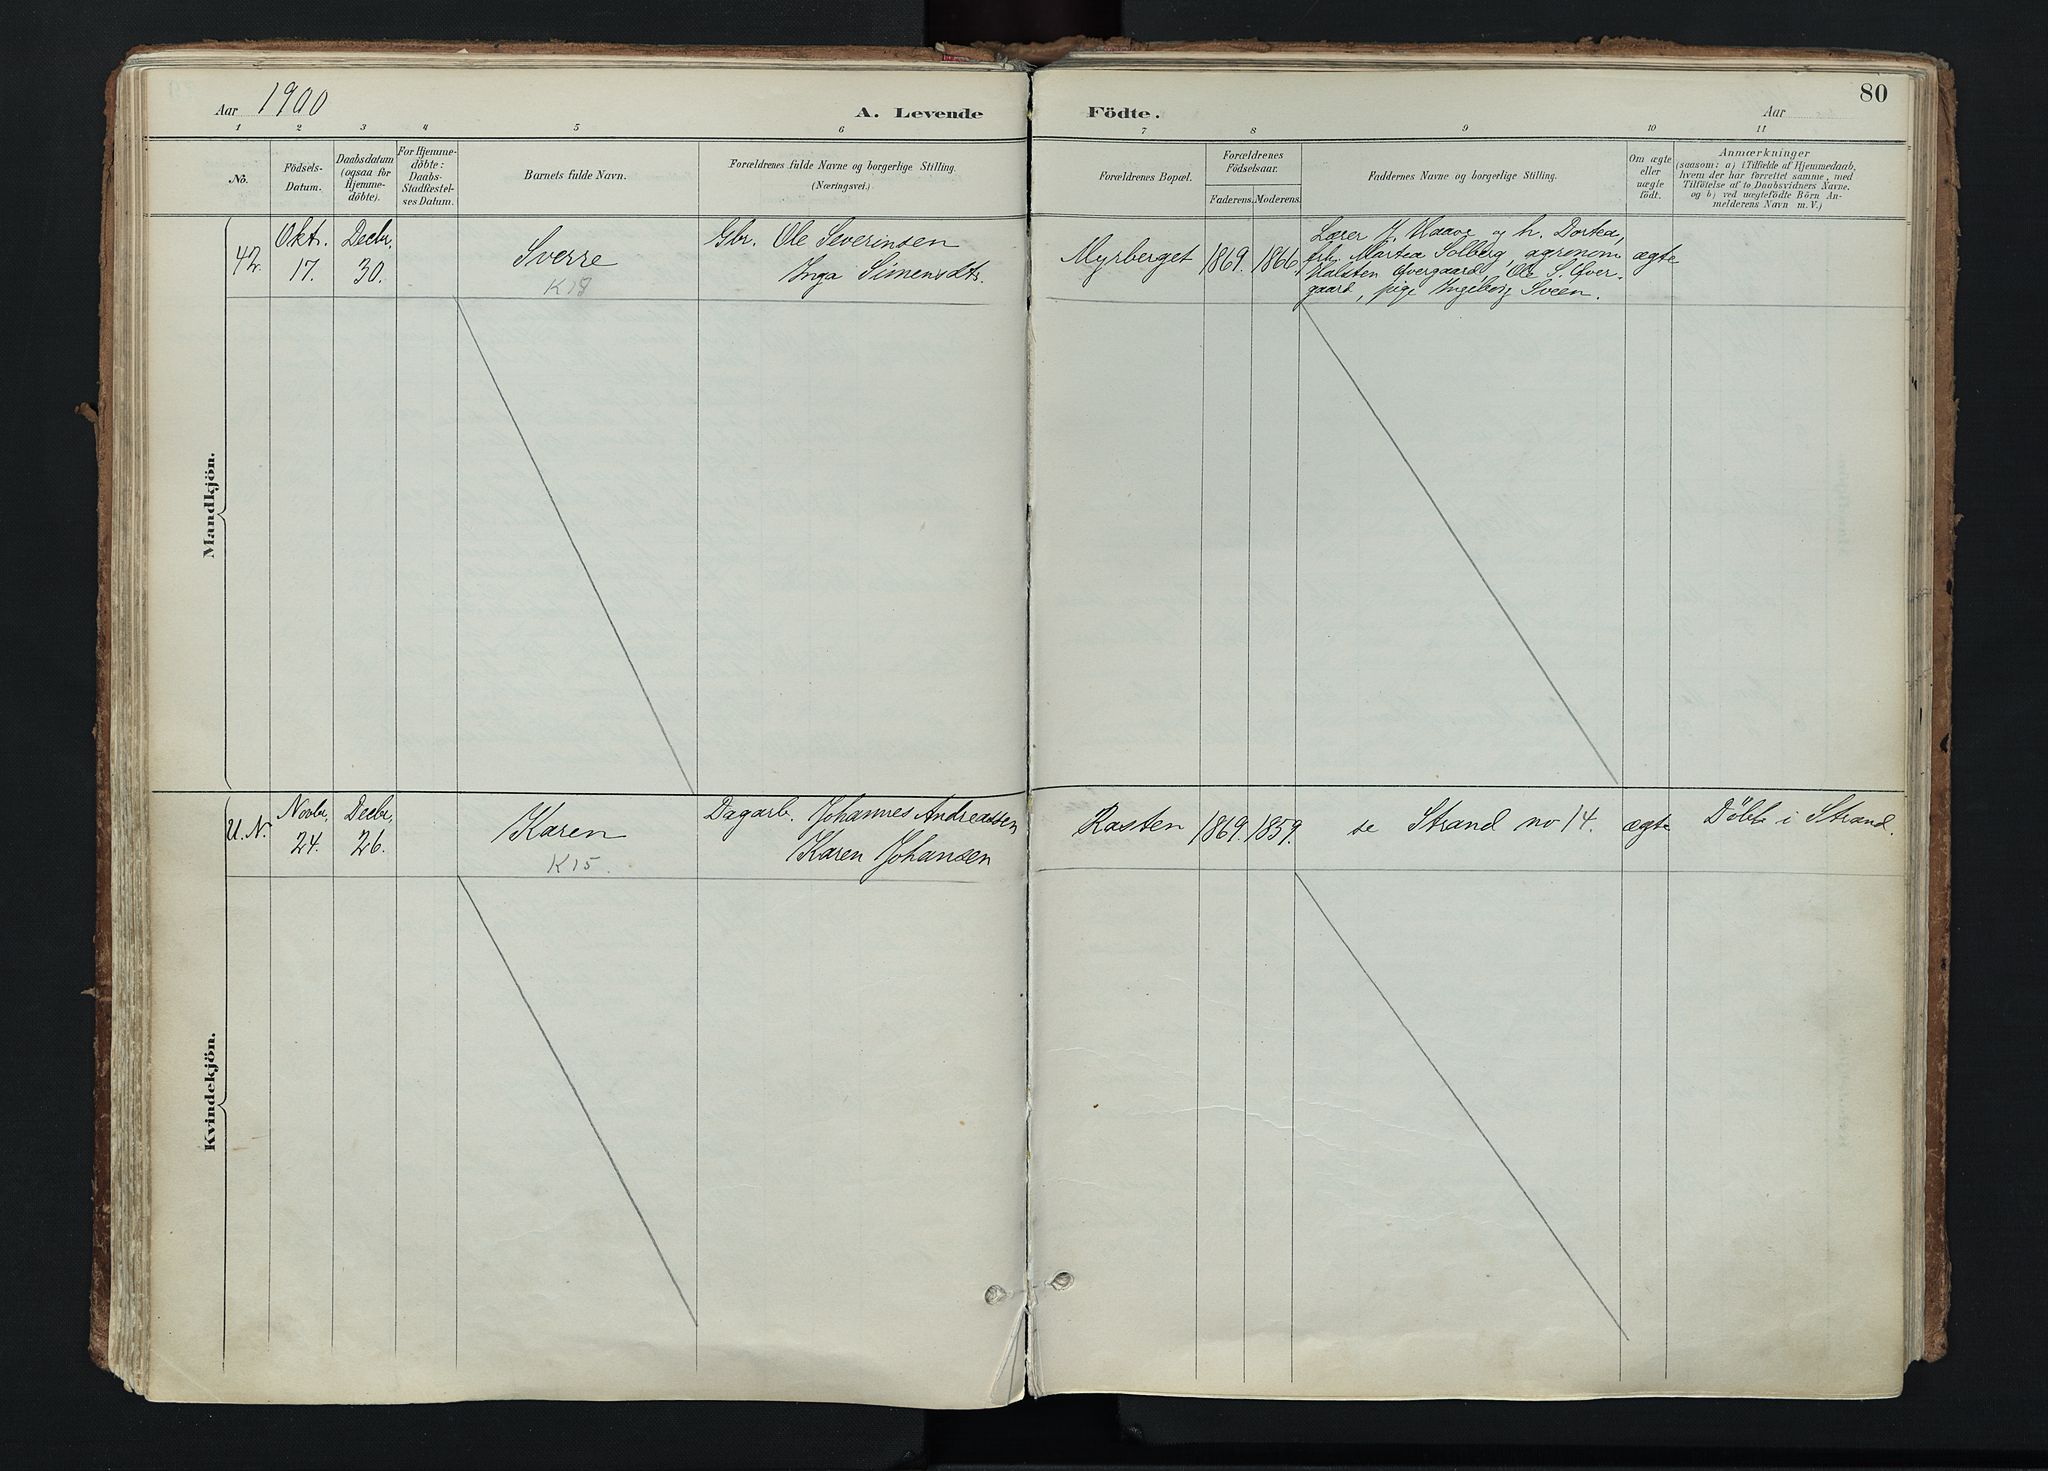 Aar 1900
A. Levende
Födte.
Aar
80
1 2 3 4 5 6 7 8 9 10 11
No.
Födsels-
Datum.
Daabsdatum
(ogsaa for
Hjemme-
döbte).
For Hjemme-
döbte:
Daabs-
Stadfæstel-
ses Datum.
Barnets fulde Navn.
Forældrenes fulde Navne og borgerlige Stilling.
(Næringsvei.)
Forældrenes Bopæl.
Forældrenes
Födselsaar.
Faderens. Moderens.
Faddernes Navne og borgerlige Stilling.
Om ægte
eller
uægte
födt.
Anmærkninger
(saasom: a) i Tilfælde af Hjemmedaab,
hvem der har forrettet samme, med
Tilföielse af to Daabsvidners Navne.
og b) ved uægtefödte Börn An-
melderens Navn m. V.)
Mandkjön.
42.
Okt.
17.
Decbr.
30.
Sverre
K 18
Gbr. Ole Severinsen
Inga Simensdtr.
Myrberget
1869.
1866
Lærer J. Haave og h. Dortea,
frk. Martea Solberg, agronom
Halsten Øvergaard, Ole S. Øver-
gaard, pige Ingeborg Sveen.
ægte
Kvindekjön.
U. N.
Novbr.
24.
Decbr.
26.
Karen
K 15.
Dagarb. Johannes Andreassen
Karen Johansen
Rasten
1869.
1859.
se Strand no 14.
ægte
Döbt i Strand.